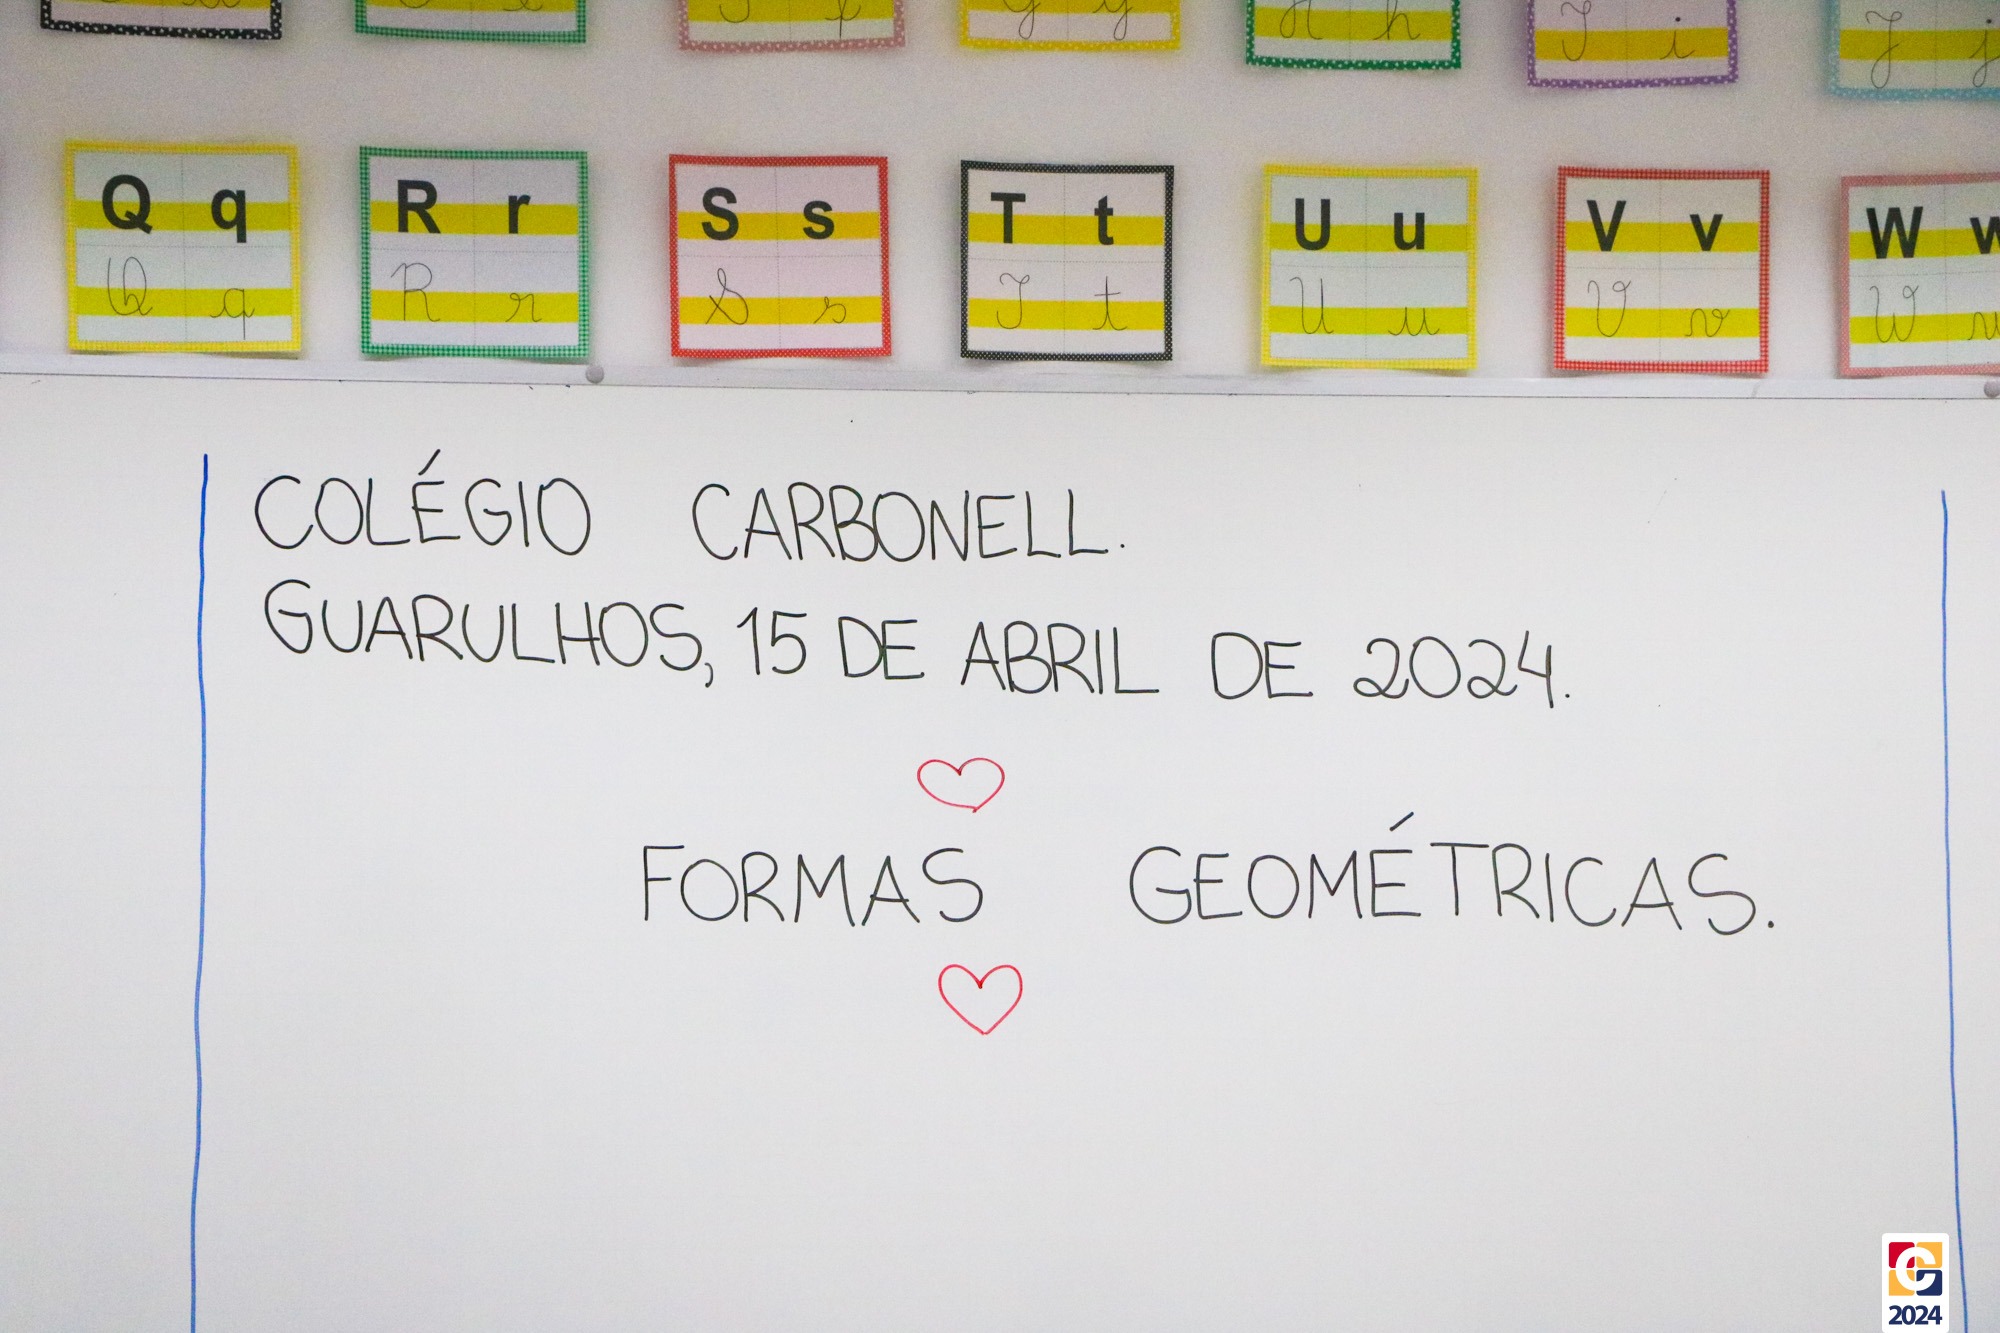 F f
G g
H h
I i
J j
Q q
R r
S s
T t
U u
V v
W w
Q q
R r
S s
T t
U u
V v
W w
COLÉGIO CARBONELL.
GUARULHOS, 15 DE ABRIL DE 2024.
FORMAS GEOMÉTRICAS.
C
2024